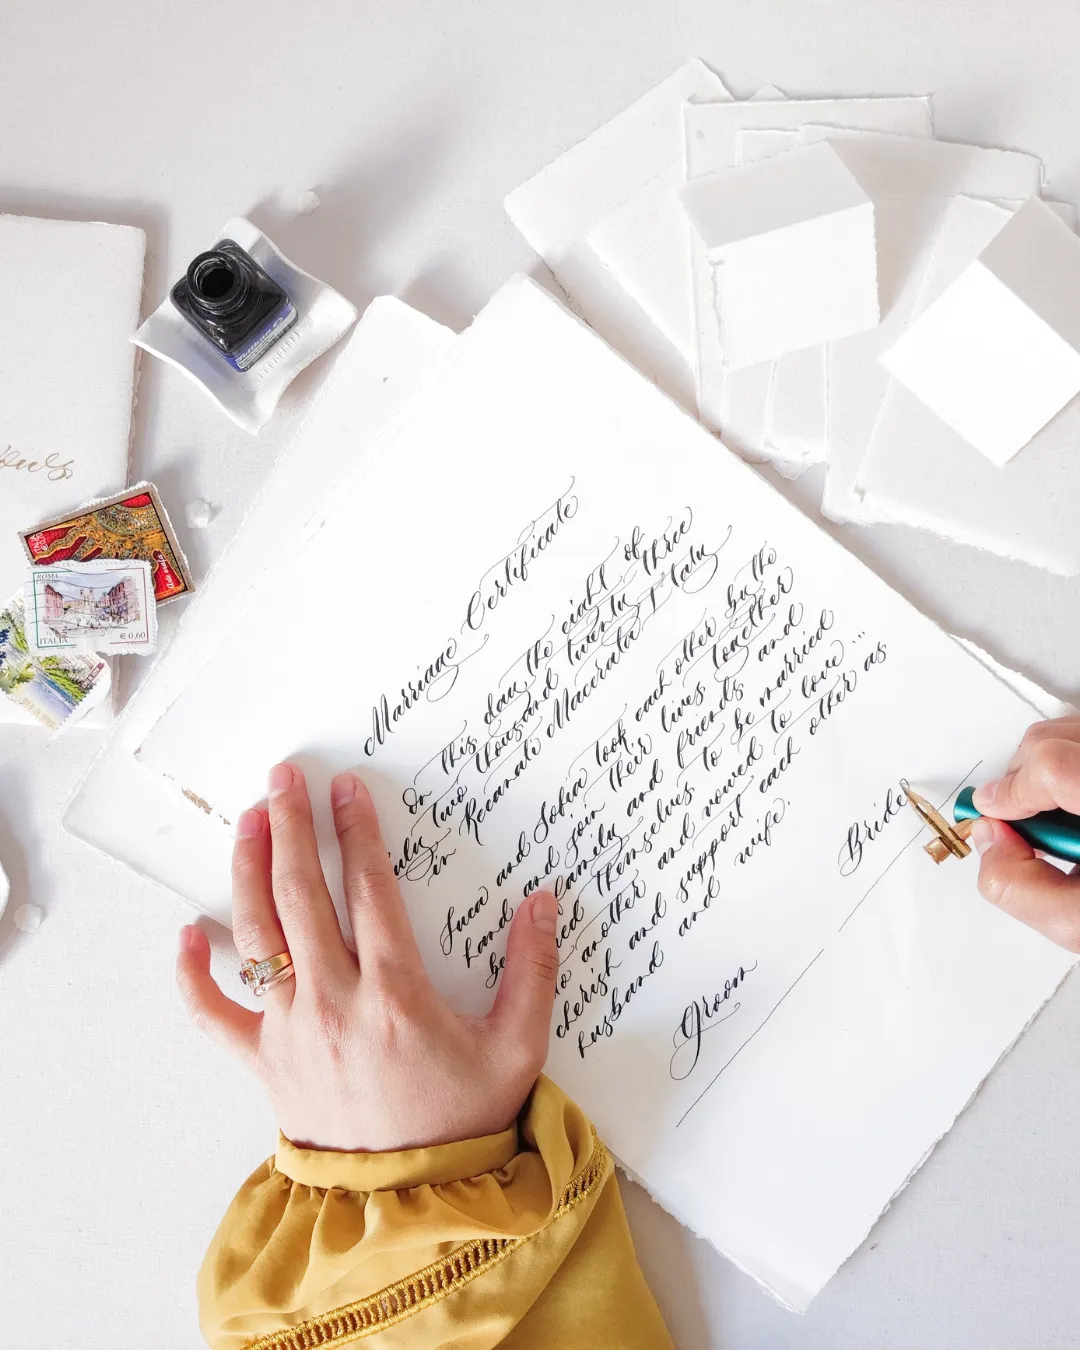 Marriage Certificate
On this day the eight of
July two thousand twenty three
in Recanati Macerata Italy
Luca and Sofia took each other by the
hand and join their lives together
be family and friends and
red themselves to be married
to another and vowed to love...
cherish and support each other as
husband and wife.
Groom
Bride
ROMA
ITALIA
€ 0.60